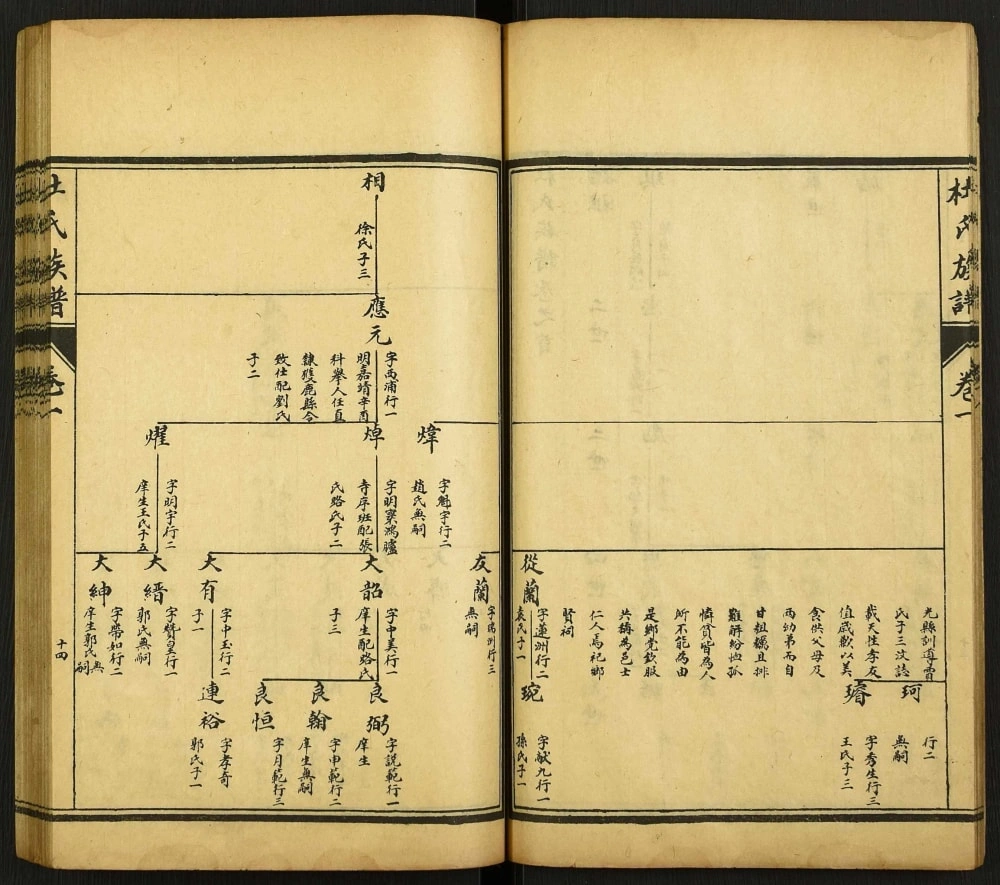 杜氏族譜
卷一
光縣訓導賈
氏子三汶誌
載天性孝友
值歲歉以美
食供父母及
两幼弟而自
甘粗糲且排
難解紛恤孤
憐貧皆為人
所不能為由
是鄉党欽服
共稱為邑士
仁人焉祀鄉
賢祠
珂
行二
無嗣
璿
字秀生行三
王氏子三
從蘭
字蓮洲行二
袁氏子一
琬
字献九行一
孫氏子一
友蘭
字瀛洲行三
無嗣
相
徐氏子三
應元
字西浦行一
明嘉靖辛酉
科舉人任直
隸獲鹿縣令
致仕配劉氏
子二
煒
字魁宇行二
趙氏無嗣
焯
字明寰鴻臚
寺序班配張
氏路氏子二
燿
字明宇行二
庠生王氏子五
大韶
字中美行一
庠生配路氏
子三
大有
字中玉行二
子一
大縉
字贊皇行一
郭氏無嗣
大紳
字帶如行二
庠生郭氏無嗣
良弼
字説範行一
庠生
良翰
字申範行二
庠生無嗣
良恒
字月範行三
連裕
字孝奇
郭氏子一
杜氏族譜
卷一
十四